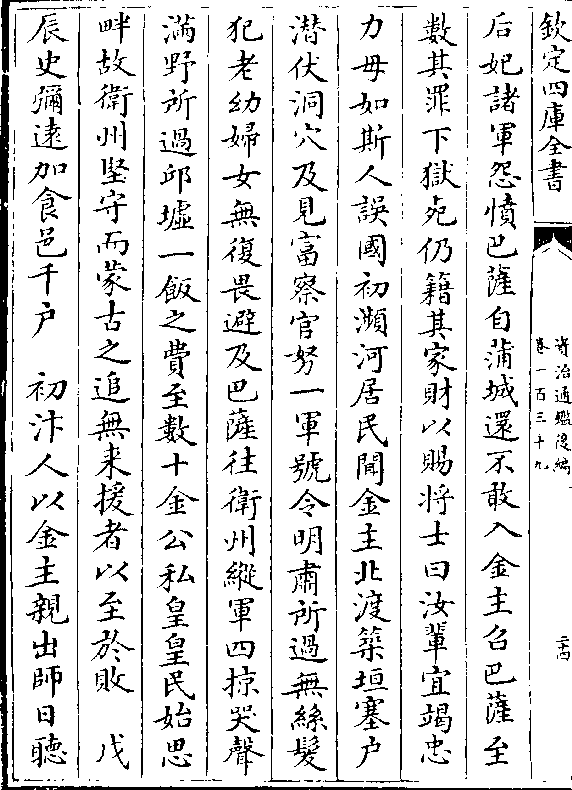 欽定四庫全書
資治通鑑後編
卷一百三十九
二十四
后妃諸軍怨憤巴薩自蒲城還不敢入金主召巴薩至
數其罪下獄死仍籍其家財以賜將士曰汝輩宜竭忠
力毋如斯人誤國初瀕河居民聞金主北渡築垣塞户
潜伏洞穴及見富察官努一軍號令明肅所過無絲髮
犯老幼婦女無復畏避及巴薩往衛州縱軍四掠哭聲
滿野所過邱墟一飯之費至數十金公私皇皇民始思
畔故衛州堅守而蒙古之追無来援者以至於敗　戊
辰史彌逺加食邑千户　初汴人以金主親出師日聽